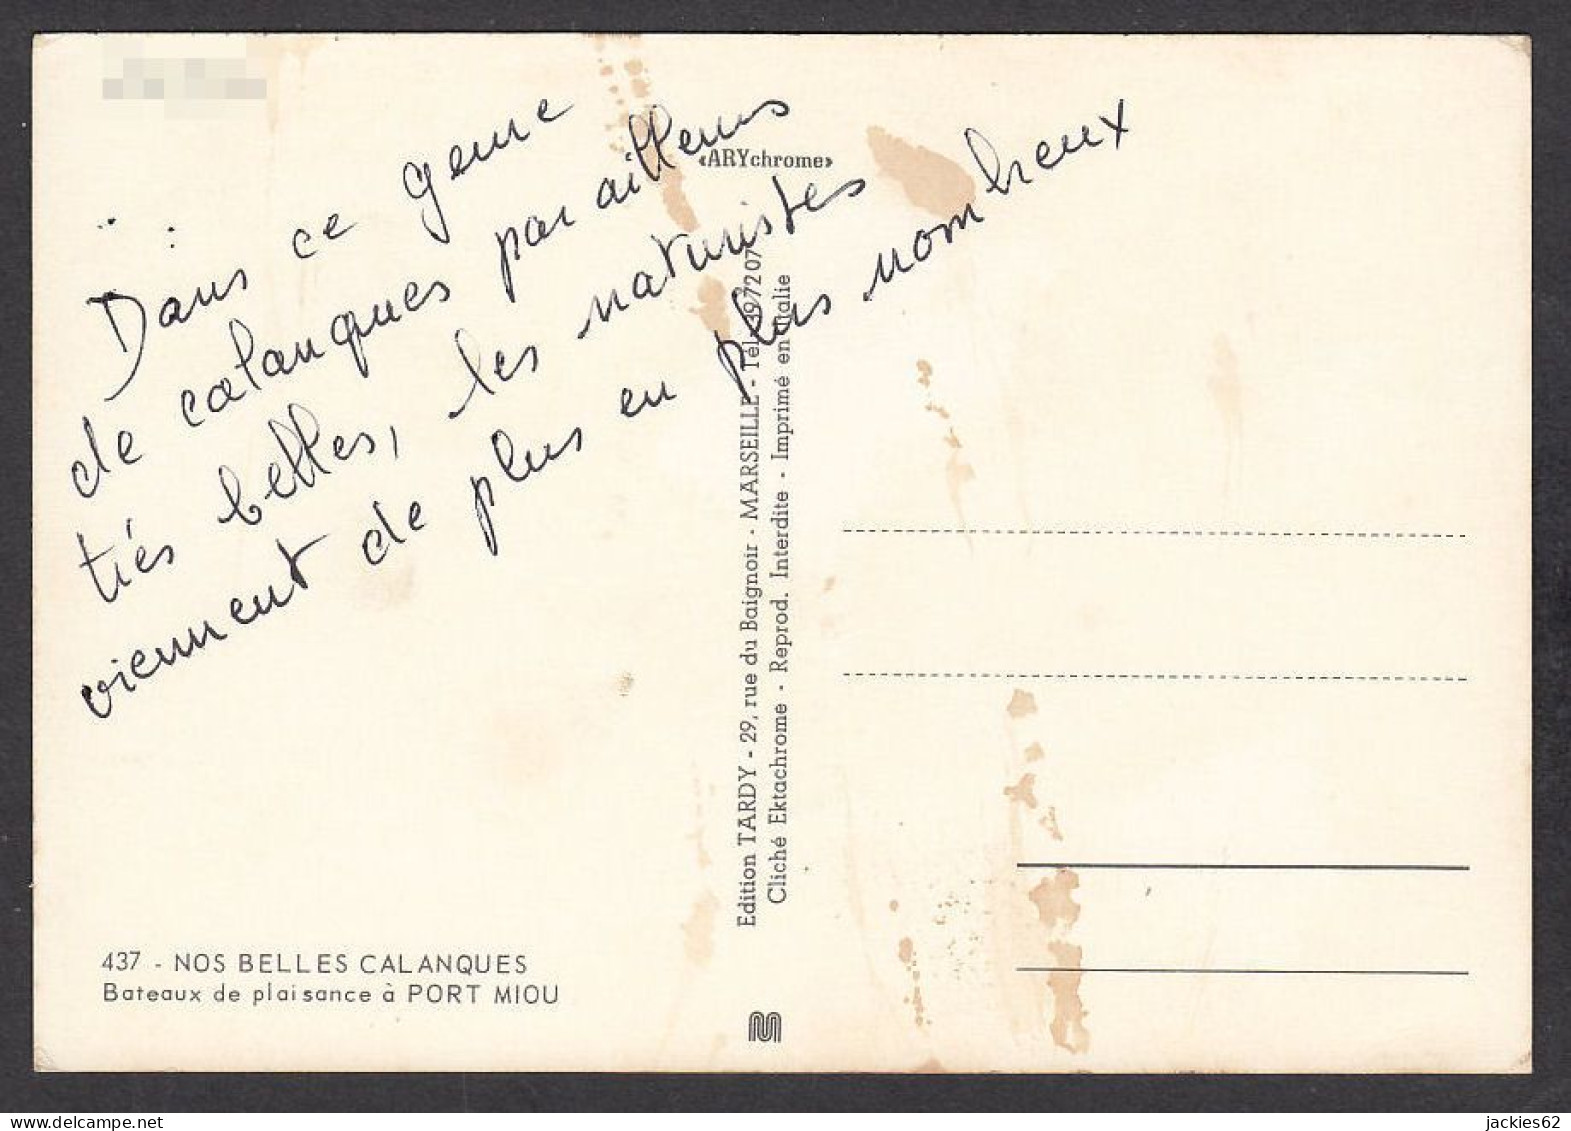 Dans ce genre
de calanques par ailleurs
très belles, les naturistes
viennent de plus en plus nombreux
«ARYchrome»
Edition TARDY - 29, rue du Baignoir - MARSEILLE - Tél. 39 72 07
Cliché Ektachrome - Reprod. Interdite - Imprimé en Italie
437 - NOS BELLES CALANQUES
Bateaux de plaisance à PORT MIOU
jackies62